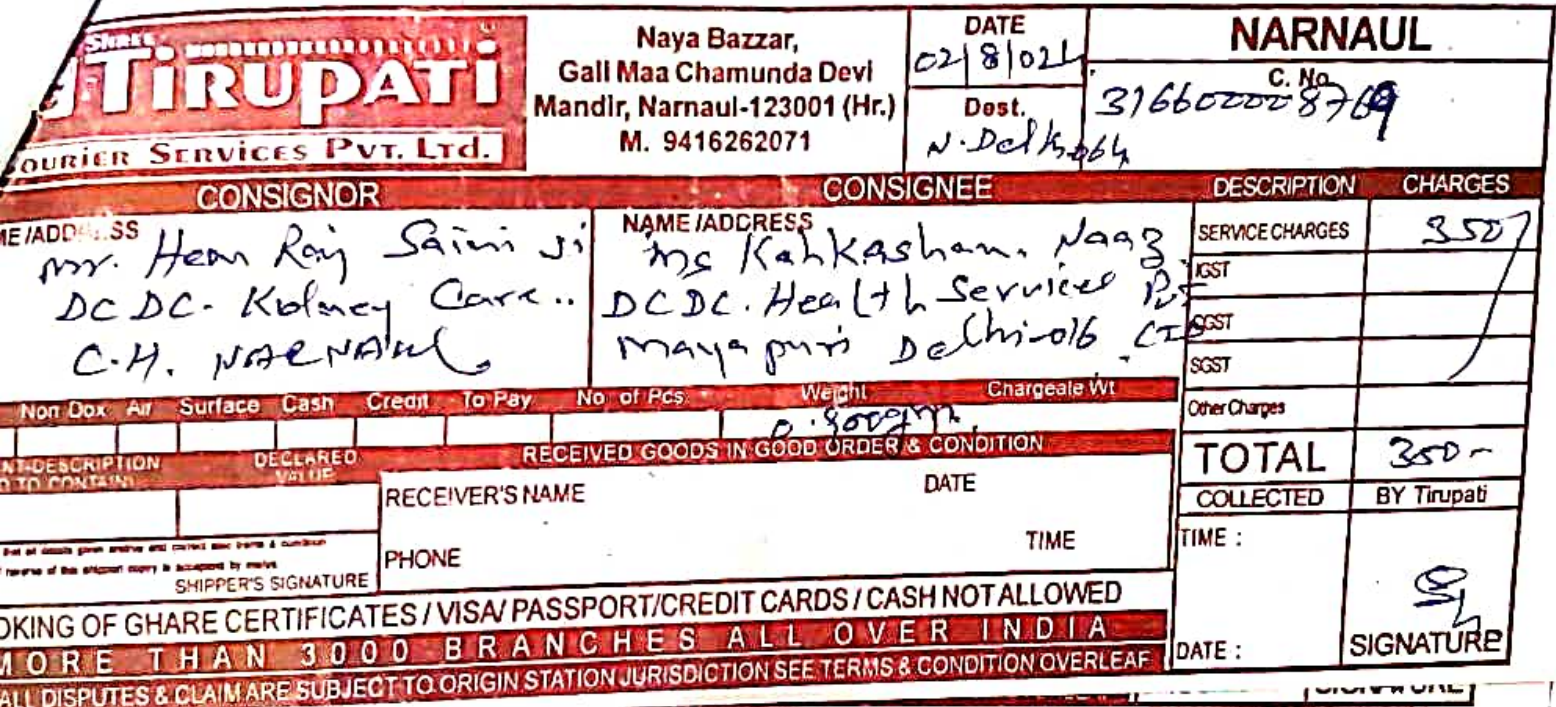 SHREE
TIRUPATI
COURIER SERVICES PVT. LTD.
Naya Bazzar,
Gali Maa Chamunda Devi
Mandir, Narnaul-123001 (Hr.)
M. 9416262071
DATE
02/8/024
Dest.
N. Delhi
NARNAUL
C. No.
316600008769
CONSIGNOR
CONSIGNEE
DESCRIPTION CHARGES
ME/ADD SS
Mr. Hem Raj Saini Ji
DCDC- Kidney Care..
C.H. NARNAUL
NAME/ADDRESS
Ms Kahkashan Naaz
DCDC. Health Services Pvt
Mayapuri Delhi-016
SERVICE CHARGES 350/
IGST
CGST
SGST
Other Charges
TOTAL 350-
Non Dox Air Surface Cash Credit To Pay No of Pcs Weight Chargeale Wt
0.800gm.
NT-DESCRIPTION
D TO CONTAIN
DECLARED
VALUE
RECEIVED GOODS IN GOOD ORDER & CONDITION
RECEIVER'S NAME DATE
PHONE TIME
SHIPPER'S SIGNATURE
COLLECTED BY Tirupati
TIME :
DATE : SIGNATURE
OKING OF GHARE CERTIFICATES / VISA/ PASSPORT/CREDIT CARDS / CASH NOT ALLOWED
MORE THAN 3000 BRANCHES ALL OVER INDIA
ALL DISPUTES & CLAIM ARE SUBJECT TO ORIGIN STATION JURISDICTION SEE TERMS & CONDITION OVERLEAF
SIGNATURE